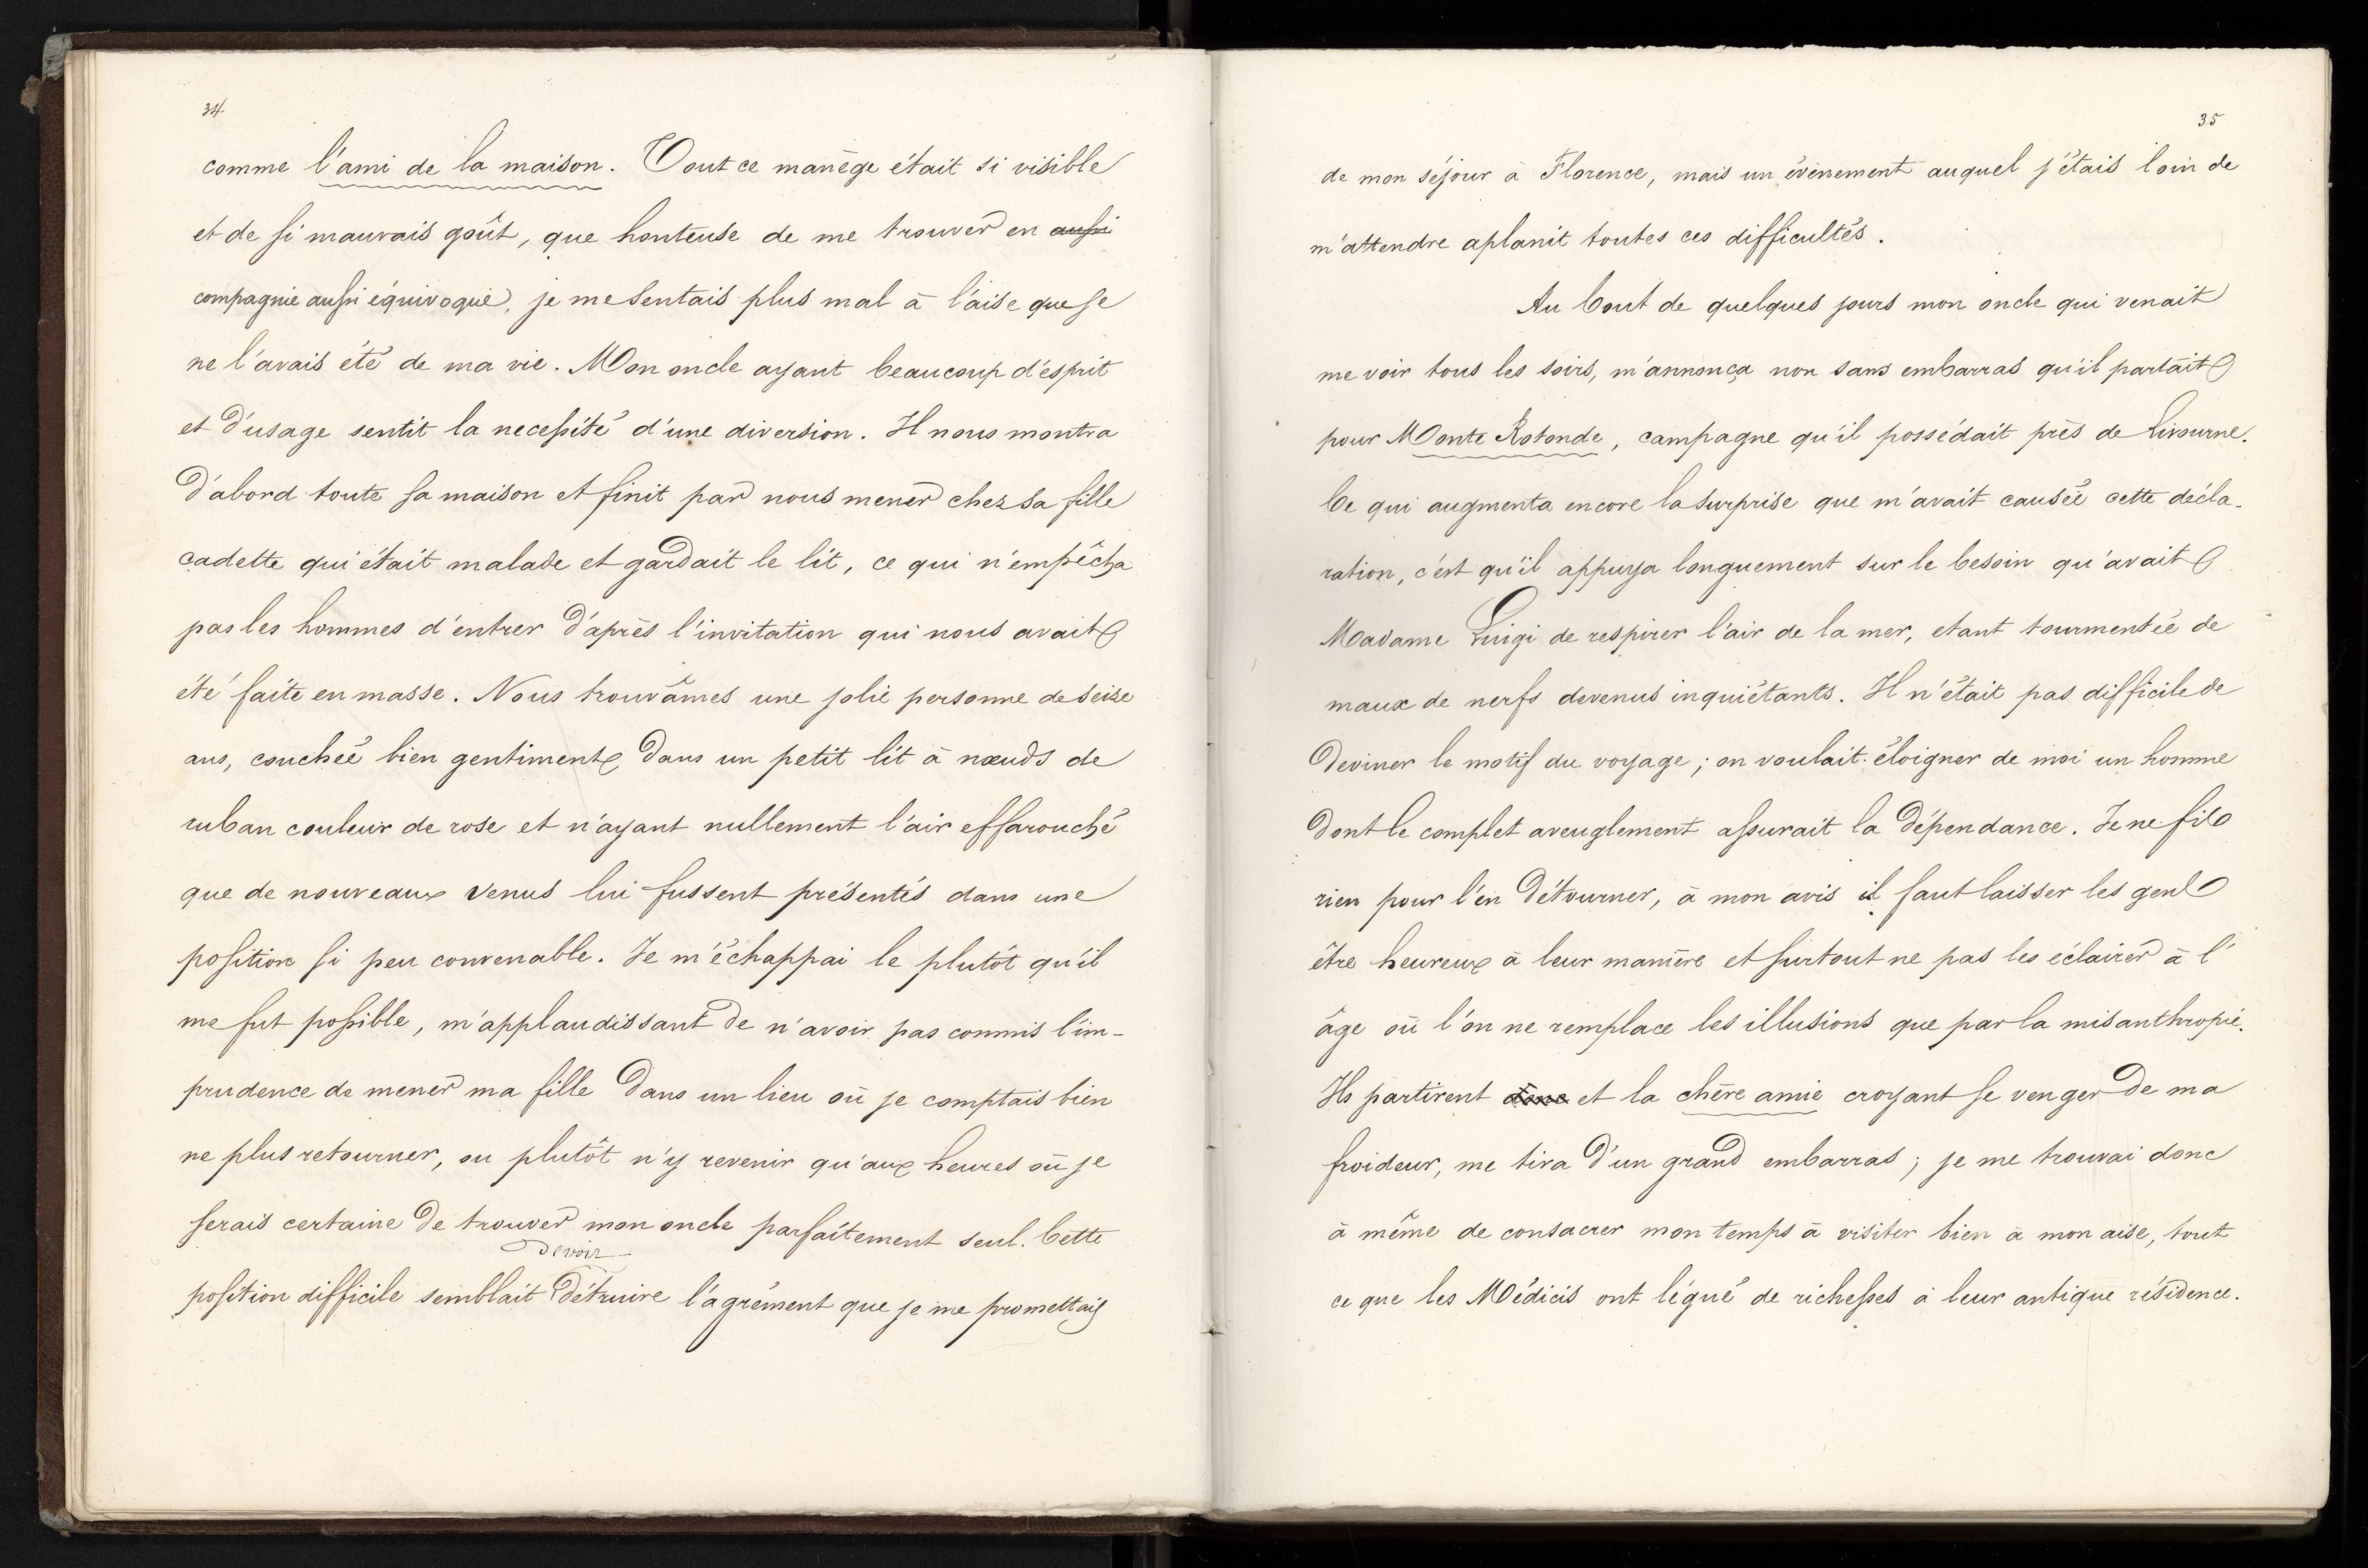 34
comme l'ami de la maison. Tout ce manège était si visible
et de si mauvais goût, que honteuse de me trouver en aussi
compagnie aussi équivoque, je me sentais plus mal à l'aise que je
ne l'avais été de ma vie. Mon oncle ayant beaucoup d'ésprit
et d'usage sentit la necessité d'une diversion. Il nous montra
d'abord toute sa maison et finit par nous mener chez sa fille
cadette qui était malade et gardait le lit, ce qui n'empêcha
pas les hommes d'entrer d'après l'invitation qui nous avait
été faite en masse. Nous trouvâmes une jolie personne de seize
ans, couchée bien gentiment dans un petit lit à nœuds de
ruban couleur de rose et n'ayant nullement l'air effarouché
que de nouveaux venus lui fussent présentés dans une
position si peu convenable. Je m'échappai le plutôt qu'il
me fut possible, m'applaudissant de n'avoir pas commis l'im-
prudence de mener ma fille dans un lieu où je comptais bien
ne plus retourner, ou plutôt n'y revenir qu'aux heures où je
serais certaine de trouver mon oncle parfaitement seul. Cette
devoir
position difficile semblait détruire l'agrément que je me promettais
35
de mon séjour à Florence, mais un évènement auquel j'étais loin de
m'attendre aplanit toutes ces difficultés.
Au bout de quelques jours mon oncle qui venait
me voir tous les soirs, m'annonça non sans embarras qu'il partait
pour Monte Rotonde, campagne qu'il possédait près de Livourne.
Ce qui augmenta encore la surprise que m'avait causée cette décla-
ration, c'est qu'il appuya longuement sur le besoin qu'avait
Madame Luigi de respirer l'air de la mer, etant tourmentée de
maux de nerfs devenus inquiétants. Il n'était pas difficile de
deviner le motif du voyage; on voulait éloigner de moi un homme
dont le complet aveuglement assurait la dépendance. Je ne fis
rien pour l'en détourner, à mon avis il faut laisser les gens
être heureux à leur manière et surtout ne pas les éclairer à l'
âge où l'on ne remplace les illusions que par la misanthropie.
Ils partirent donc et la chère amie croyant se venger de ma
froideur, me tira d'un grand embarras; je me trouvai donc
à même de consacrer mon temps à visiter bien à mon aise, tout
ce que les Médicis ont légué de richesses à leur antique résidence.